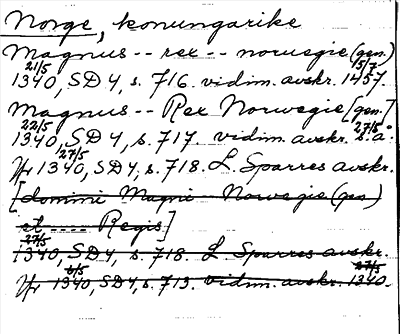 Norge, konungarike
Magnus -- rex -- noruegie (gen.)
21/5 15/7
1340, SD 4, s. 716. vidim. avskr. 1457.
Magnus -- Rex Norwegie [gen.]
22/5 27/5
1340, SD 4, s. 717. vidim. avskr. s. å.
27/5
Yr 1340, SD 4, s. 718. L. Sparres avskr.
[domini Magni Norwegie (gen)
et ---- Regis]
27/5
1340, SD 4, s. 718. L. Sparres avskr.
6/5 27/5
Yr 1340, SD 4, s. 713. vidim. avskr. 1340.